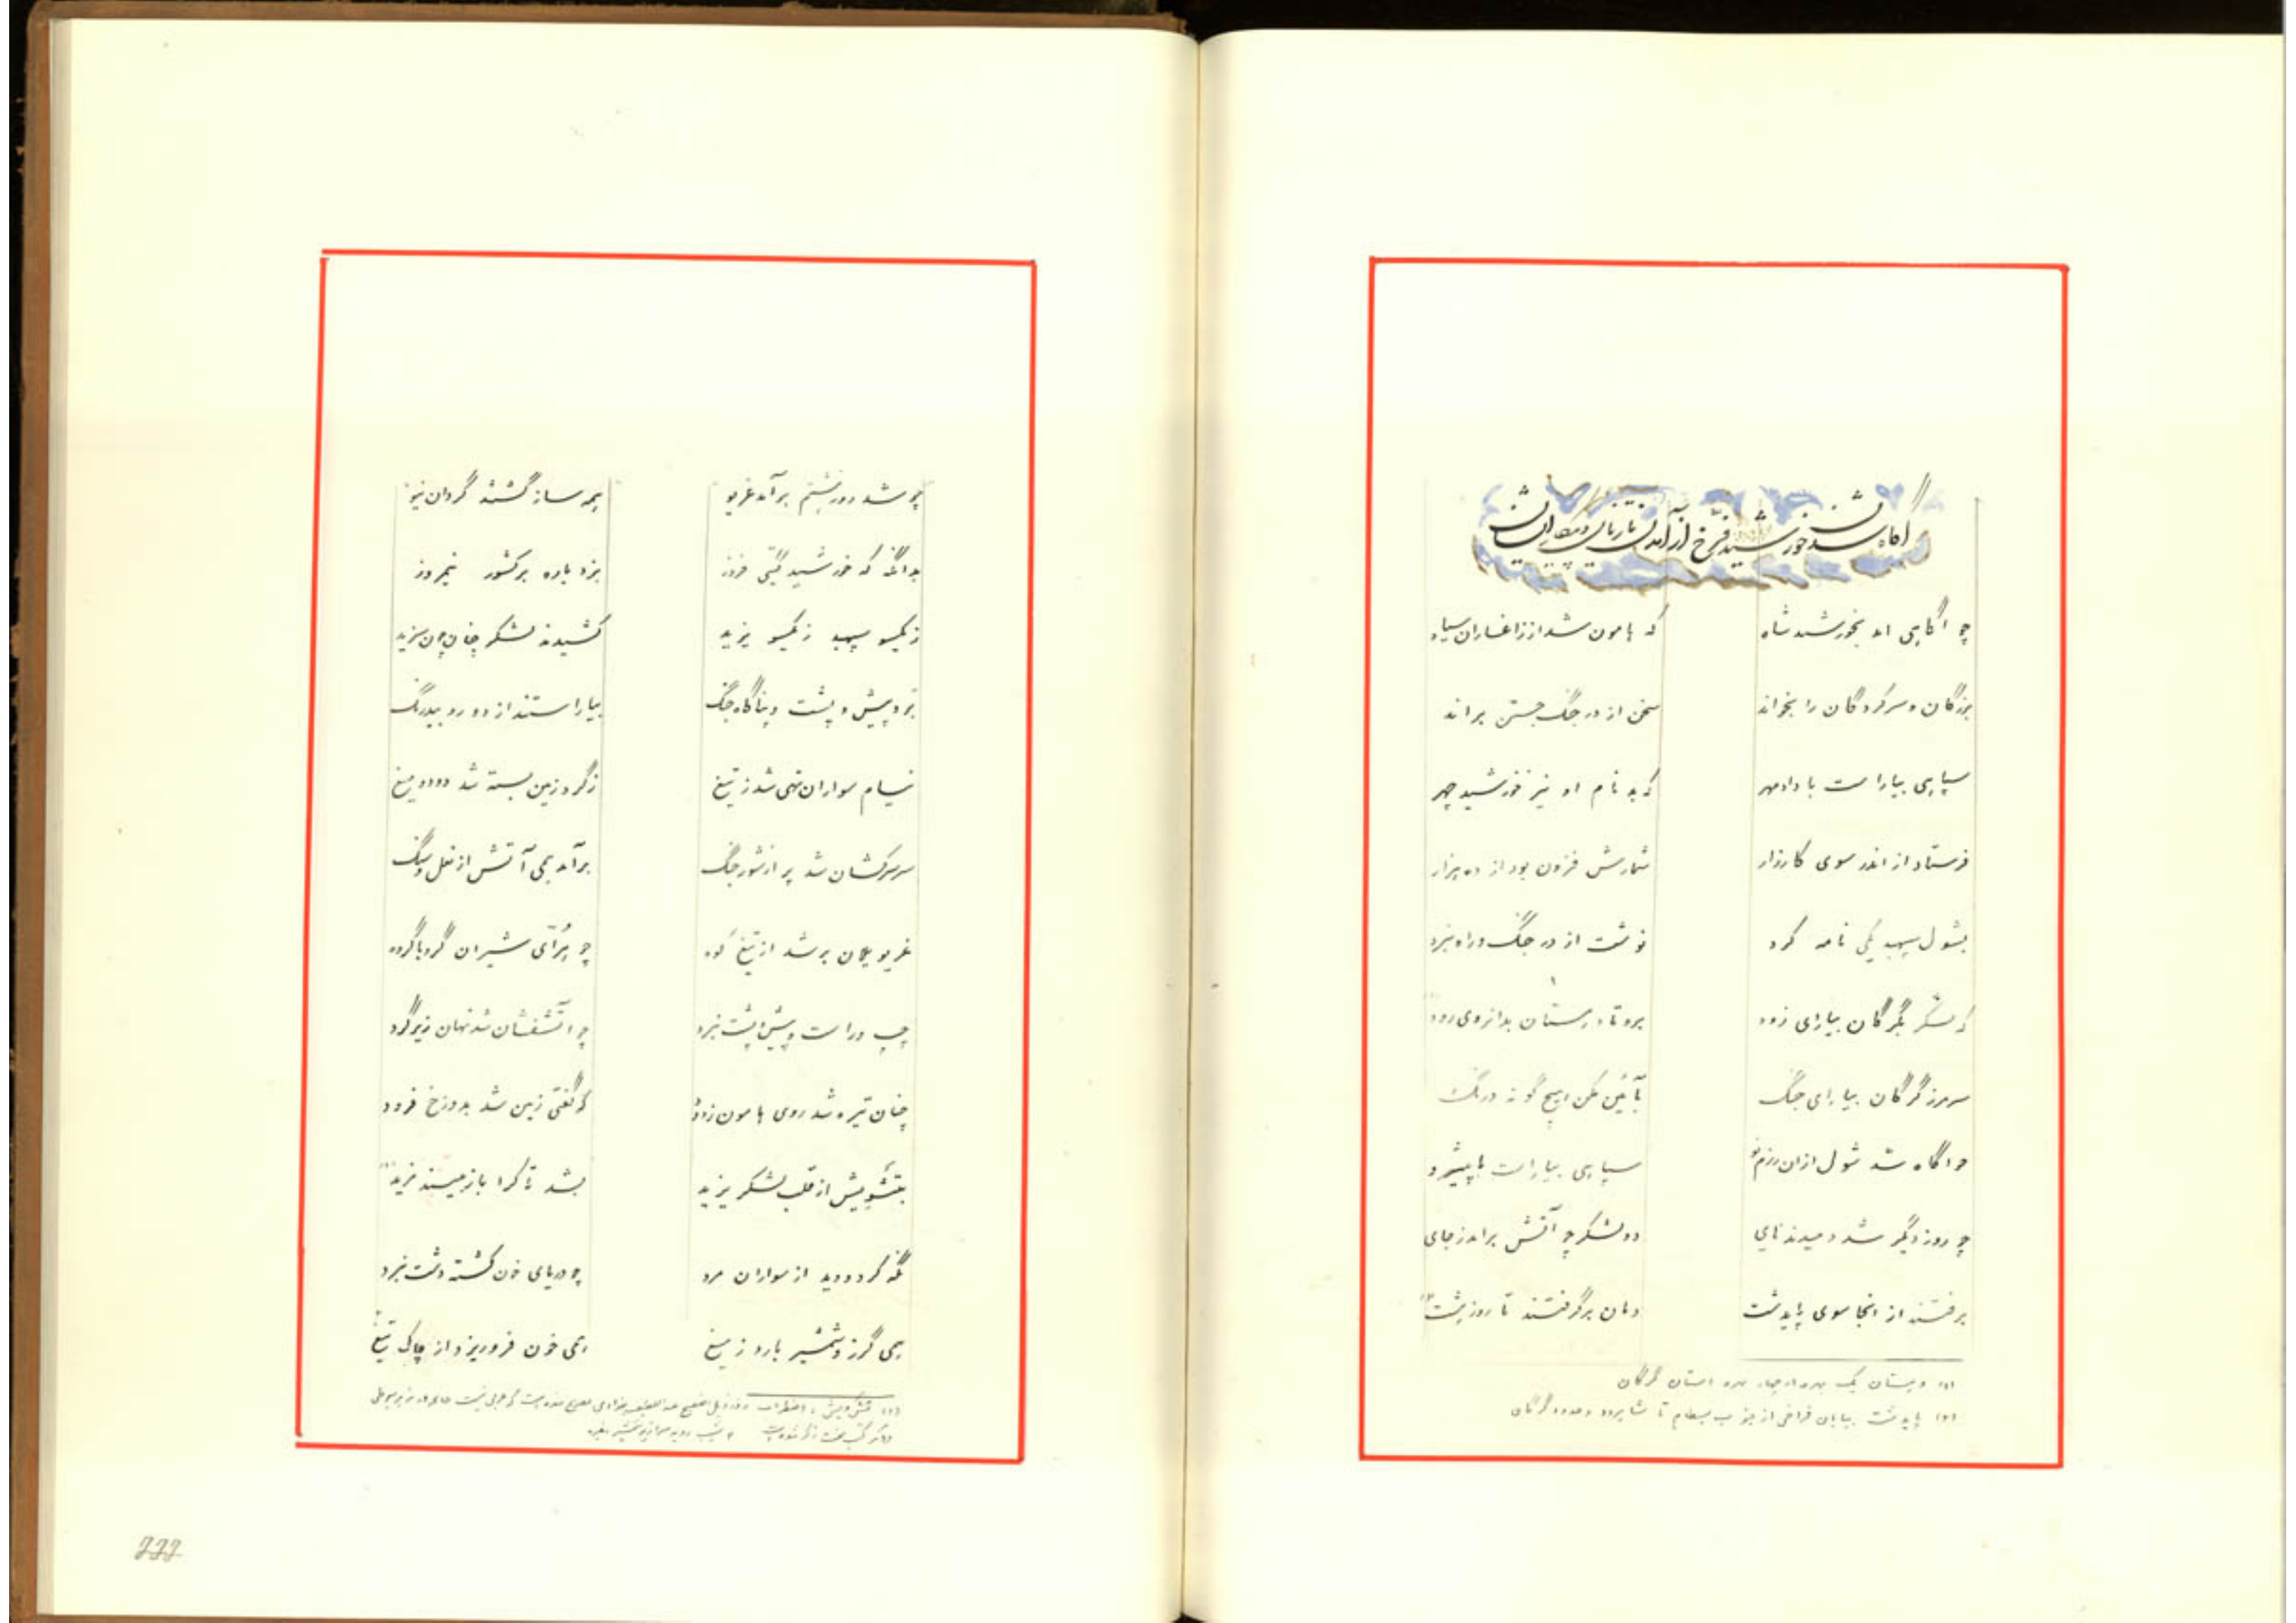 آگاه شدن خورشید فرخ از آمدن تازیان و پیکار ایشان
چو آگاهی امد بخورشید شاه
که هامون شد از زاغساران سیاه
بزرگان و سرکردگان را بخواند
سخن از در جنگ جستن براند
سپاهی بیاراست با دادمهر
که بد نام او نیز خورشید چهر
فرستاد از اندر سوی کارزار
شمارش فزون بود از ده هزار
بشول سپهبد یکی نامه کرد
نوشت از در جنگ و راه نبرد
که لشگر بگرگان بیارای زود
برو تا دهستان بدانروی رود
سرمرز گرگان بیارای جنگ
بآئین مکن هیچ گونه درنگ
چو اگاه شد شول ازان رزم نو
سپاهی بیاراست با پیشرو
چو روز دگر شد دمیدند نای
دو لشکر چو آتش برامد ز جای
برفتند از انجا سوی پایدشت
دمان برگرفتند تا روز هشت
(۱) دهستان یک بهره از چهار بهره استان گرگان
(۲) پایدشت بیابان فراخی از جنوب بسطام تا شاهرود و حدود گرگان
چو شد روز هشتم برآمد غریو
همه ساز گشتند گردان نیو
بدانگه که خورشید گیتی فروز
بزد باره بر کشور نیمروز
ز یکسو سپهبد ز یکسو یزید
کشیدند لشکر چنان چون سزید
برو پیش و پشت و پناگاه جنگ
بیاراستند از دو رو بیدرنگ
نیام سواران تهی شد ز تیغ
ز گرد زمین بسته شد دود و میغ
سر سرکشان شد پر از شور جنگ
برآمد همی آتش از نعل و سنگ
غریو یلان بر شد از تیغ کوه
چو هرّای شیران گروها گروه
چپ و راست و پیش و پشت نبرد
چو اتشفشان شد نهان زیر گرد
چنان تیره شد روی هامون ز دود
که گفتی زمین شد بدوزخ فرود
بتشویش از قلب لشکر یزید
بشد تا کرا باز میبیند یزید
نگه کرد و دید از سواران مرد
چو دریای خون گشته دشت نبرد
همی گرز و شمشیر بارد ز میغ
همی خون فروریزد از چاک تیغ
222